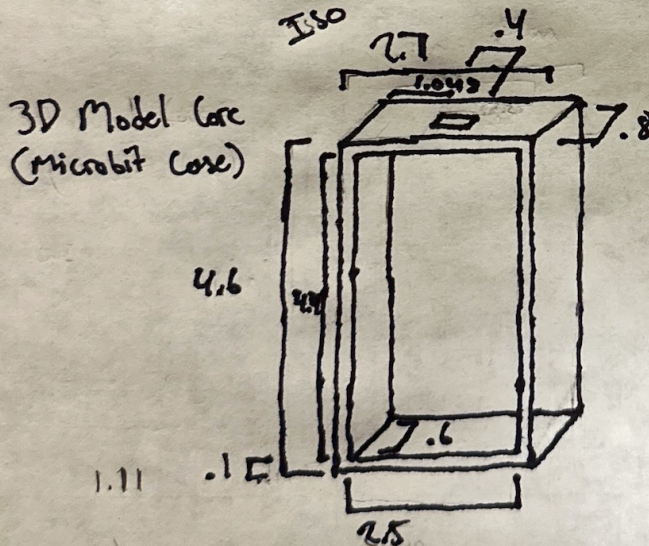 Iso
.4
2.7
1.048
3D Model Core
(Microbit Case)
.8
4.6
4.4
.6
.1
1.11
2.5